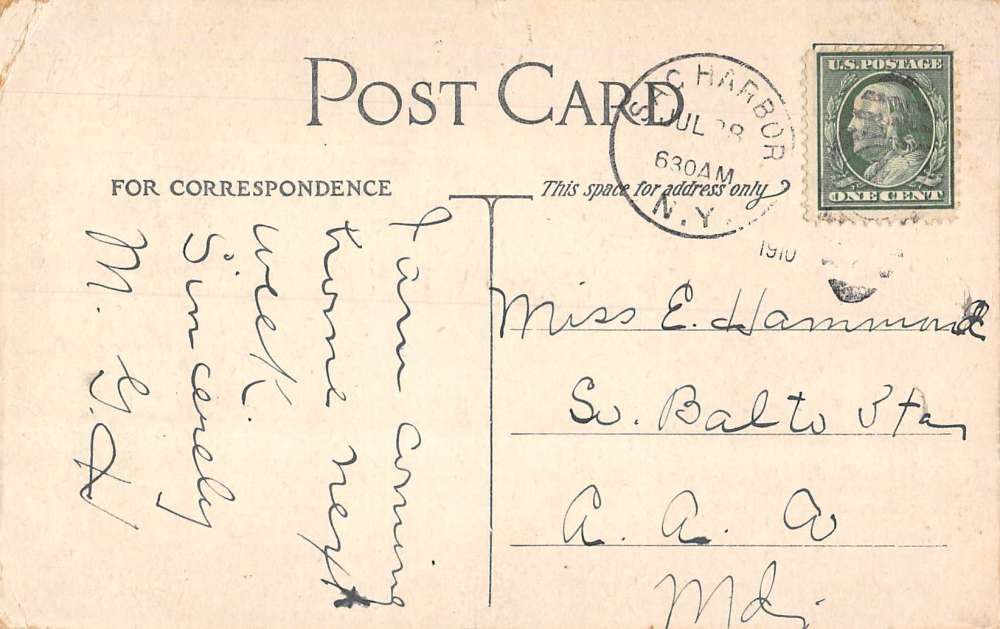 POST CARD
FOR CORRESPONDENCE
This space for address only
SAG HARBOR
JUL 28
630AM
N.Y.
1910
U.S. POSTAGE
ONE CENT
I am coming
home next
week.
Sincerely
M. G. H
Miss E. Hammond
So. Balto Sta
A. A. Co
Md.